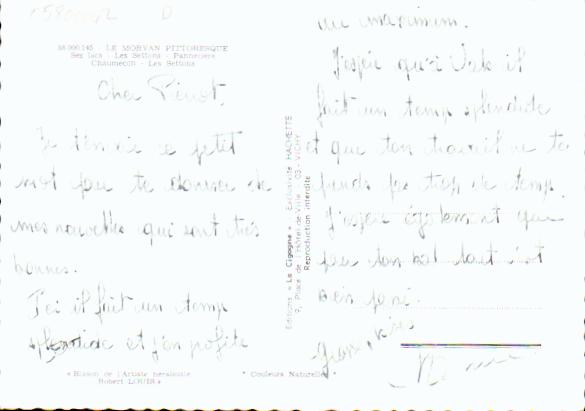 58.000.145 - LE MORVAN PITTORESQUE
Ses lacs - Les Settons - Pannecière
Chaumecon - Les Settons
Cher Pienot,
Je t'envoie ce petit
mot pour te donner de
mes nouvelles qui sont très
bonnes.
Ici il fait un temps
splendide et j'en profite
« Blason de l'Artiste héraldiste
Robert LOUIS »
* Couleurs Naturelles
Editions « La Cigogne » - Exclusivité HACHETTE
9, Place de l'Hôtel-de-Ville - 03 - VICHY
Reproduction interdite
au maximum.
J'espère qu'à il
fait un temps splendide
et que ton travail ne te
prends pas trop de temps.
J'espère également que
pour ton bal tout s'est
bien passé.
Grosses bises